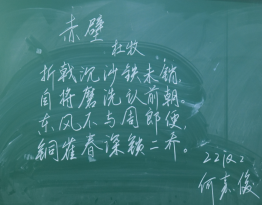 赤壁
杜牧
折戟沉沙铁未销,
自将磨洗认前朝。
东风不与周郎便,
铜雀春深锁二乔。
何嘉俊